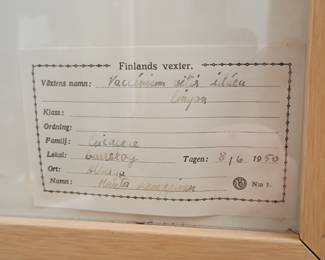 Finlands vexter.
Växtens namn: Vaccinium vitis idaea
lingon
Klass:
Ordning:
Familj:
Lokal: barrskog
Tagen: 8/6 1950
Ort:
Namn: Märta
N:o 1.